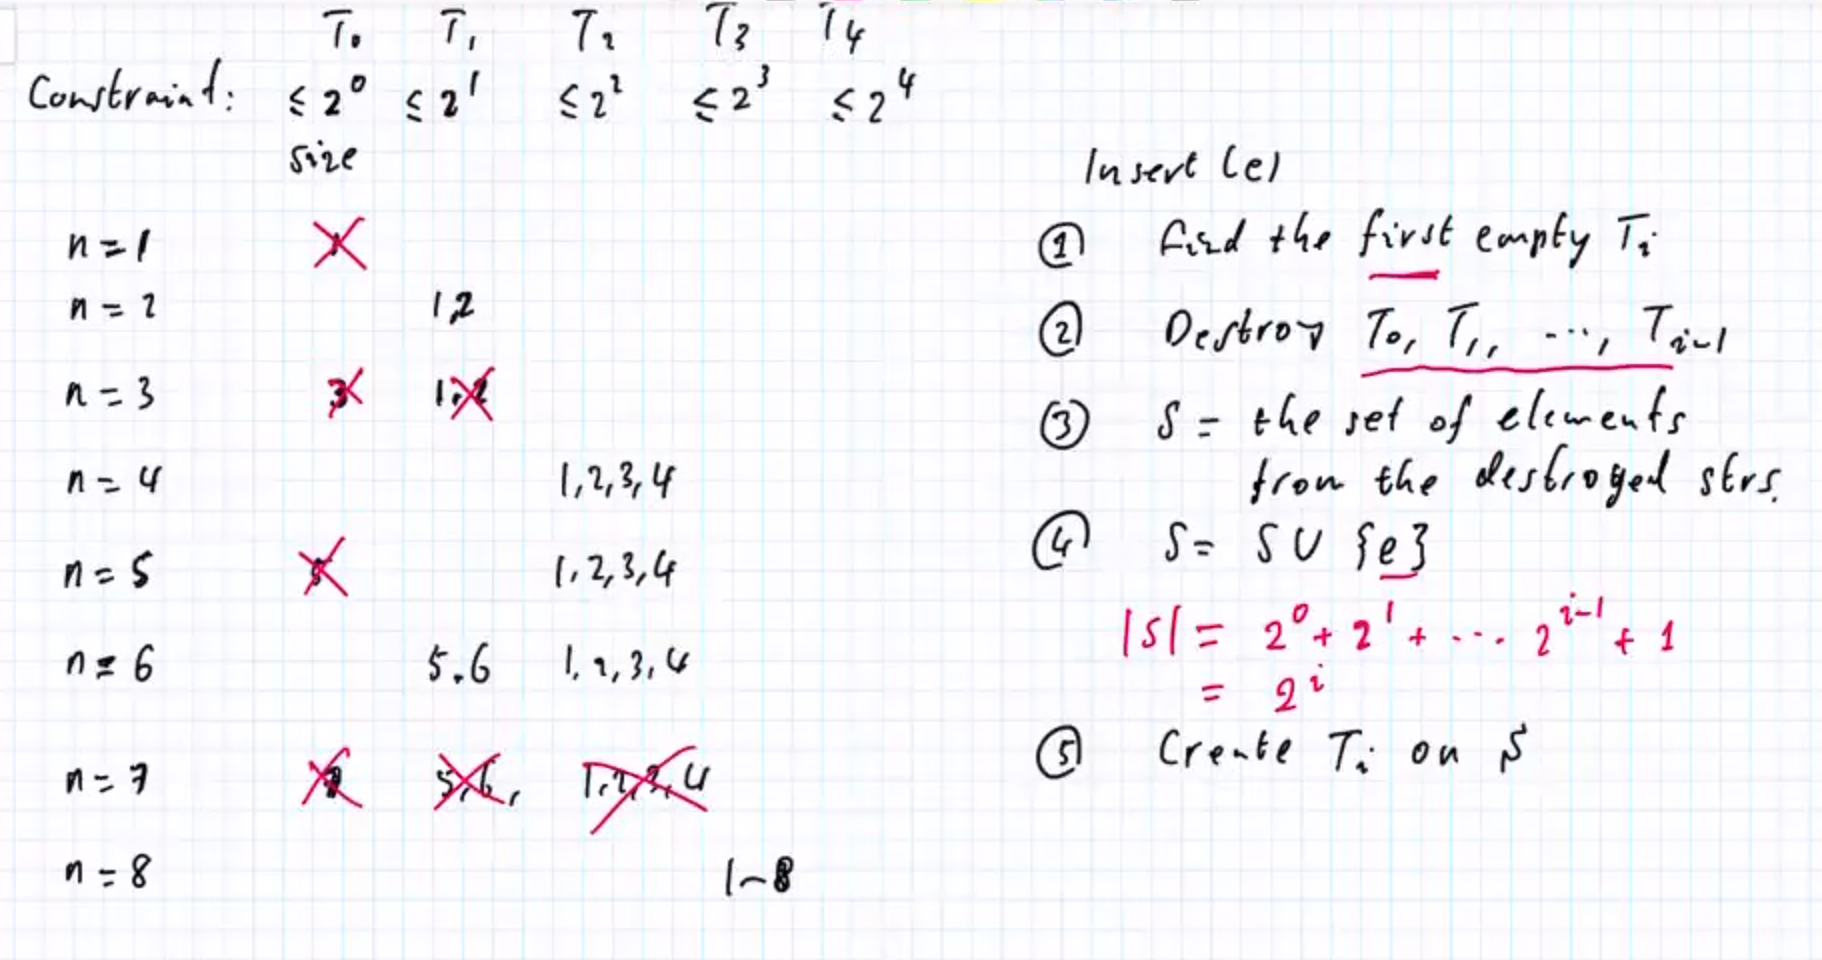 T₀ T₁ T₂ T₃ T₄
Constraint: ≤ 2⁰ ≤ 2¹ ≤ 2² ≤ 2³ ≤ 2⁴
size
n = 1
n = 2 1,2
n = 3 3 1,2
n = 4 1,2,3,4
n = 5 5 1,2,3,4
n = 6 5,6 1,2,3,4
n = 7 5,6, 1,2,3,4
n = 8 1–8
Insert (e)
① Find the first empty Tᵢ
② Destroy T₀, T₁, ..., Tᵢ₋₁
③ S = the set of elements
from the destroyed strs.
④ S = S ∪ {e}
|S| = 2⁰ + 2¹ + ... 2ⁱ⁻¹ + 1
= 2ⁱ
⑤ Create Tᵢ on S